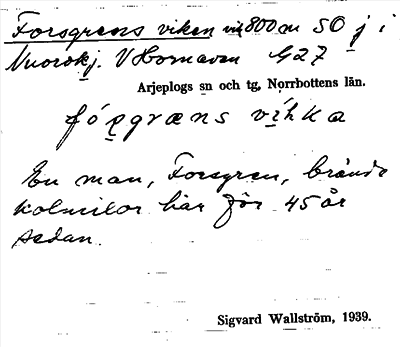 Forsgrens viken vik 800 m SO j i
Nuorokj. V Hornavan G27
Arjeplogs sn och tg, Norrbottens län.
fórgræns víhka
En man, Forsgren, brände
kolmilor här för 45 år
sedan.
Sigvard Wallström, 1939.